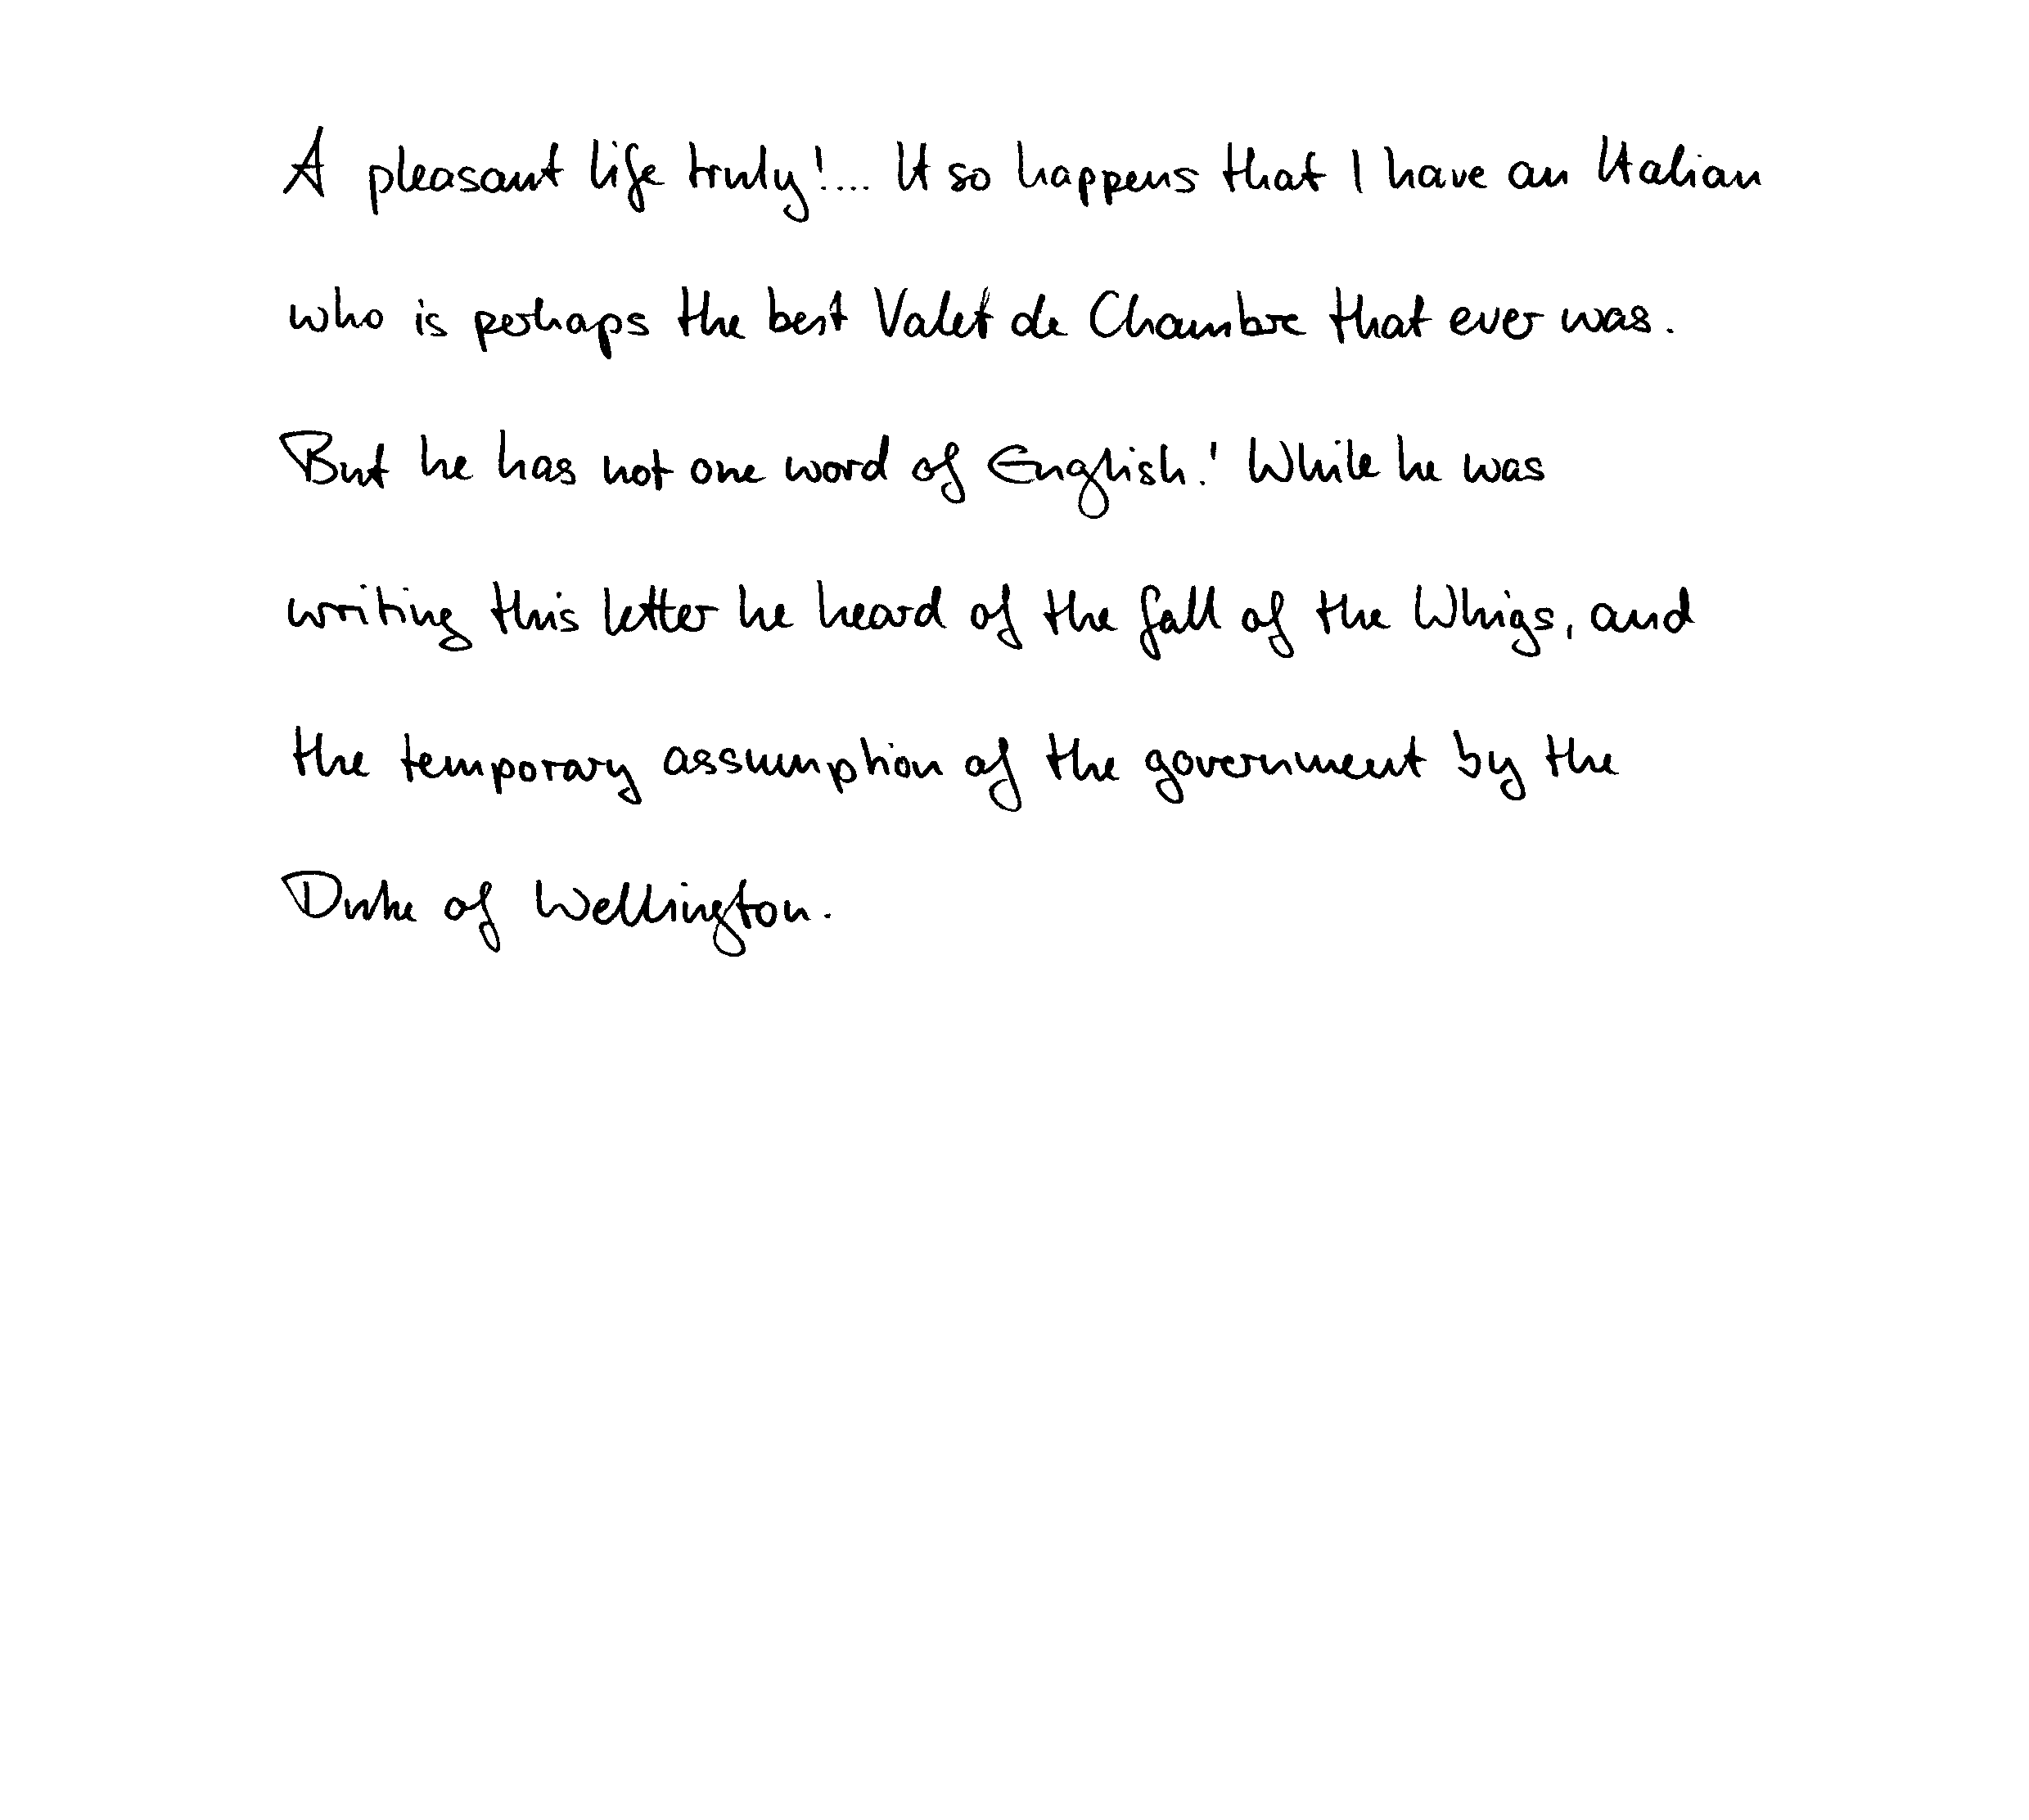 A pleasant life truly!... It so happens that I have an Italian
who is perhaps the best Valet de Chambre that ever was.
But he has not one word of English! While he was
writing this letter he heard of the fall of the Whigs, and
the temporary assumption of the government by the
Duke of Wellington.